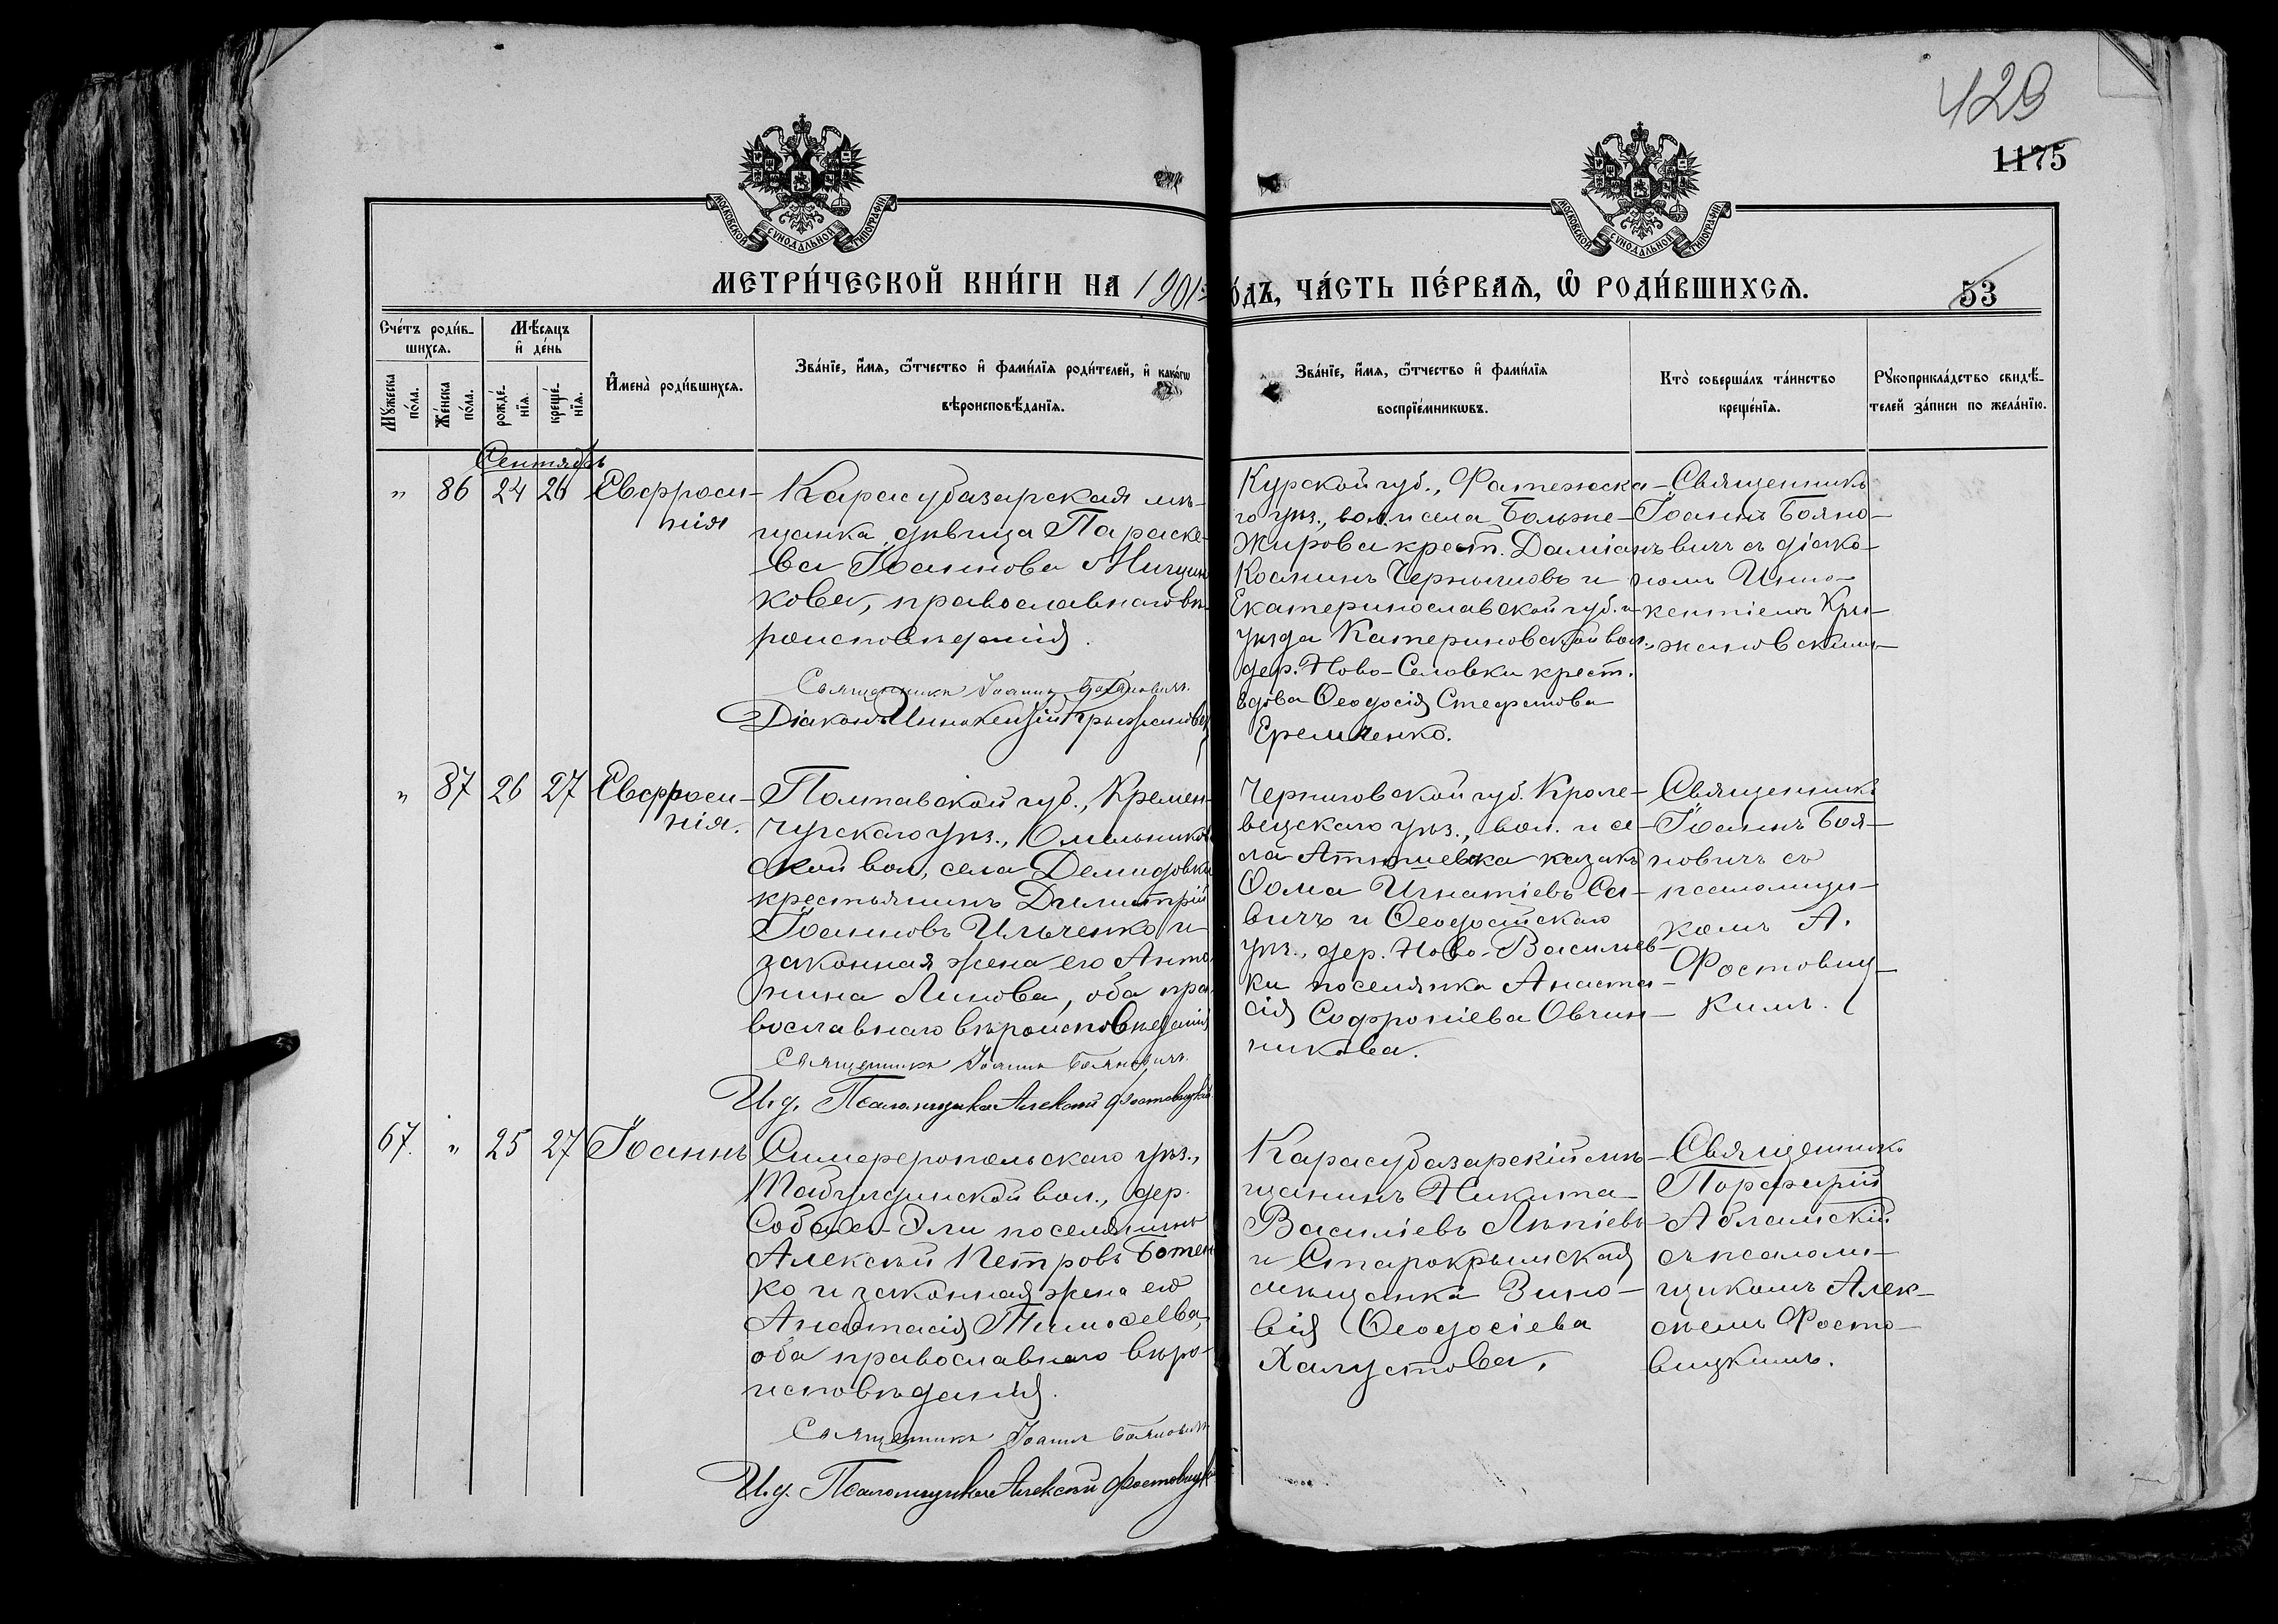 429
1175
МОСКОВСКОЙ СѴНОДАЛЬНОЙ ТИПОГРАФІИ
МОСКОВСКОЙ СѴНОДАЛЬНОЙ ТИПОГРАФІИ
МЕТРИ́ЧЕСКОЙ КНИ́ГИ НА 1901
О́ДЪ, ЧА́СТЬ ПЕ́РВАѦ, Ѡ҆ РОДИ́ВШИХСѦ.
53
Сче́тъ роди́в-
шихсѧ.
Мꙋ́жеска по́ла.
Же́нска по́ла.
Мѣ́сѧцъ
и҆ де́нь
рожде́-
нїѧ.
креще́-
нїѧ.
И҆мена̀ роди́вшихсѧ.
Зва́нїе, и҆́мѧ, ѻ҆́тчество и҆ фами́лїѧ роди́телей, и҆ како́гѡ
вѣроисповѣ́данїѧ.
Зва́нїе, и҆́мѧ, ѻ҆́тчество и҆ фами́лїѧ
воспрїе́мникѡвъ.
Кто̀ соверша́лъ та́инство
креще́нїѧ.
Рꙋкоприкла́дство свидѣ́-
телей за́писи по жела́нїю.
Сентябрь
" 86 24 26
Евфроси-
нія
Карасубазарская мѣ-
щанка, дѣвица Параске-
ва Іоаннова
кова, православнаго вѣ-
роисповѣданія.
Священникъ Іоаннъ Бояновичъ.
Діаконъ Иннокентій Крыжановск
Курской губ., Фатежска-
го уѣз., вол. и села Больше-
Жирова крест. Даміанъ
Косминъ Чернышовъ и
Екатеринославской губ. и
уѣзда Катериновской вол.,
дер. Ново-Селовки крест.
вдова Ѳеодосія Стефанова
Еремченко.
Священникъ
Іоаннъ Бояно-
вичъ съ діако-
номъ Инно-
кентіемъ Кры-
жановскимъ
" 87 26 27
Евфроси-
нія.
Полтавской губ., Кремен-
чугскаго уѣз., Омельников
ской вол., села Демидовки
крестьянинъ Димитрій
Іоанновъ Ильченко и
законная жена его Анто
нина Линова, оба пра
вославнаго вѣроисповѣданія
Священникъ Іоаннъ Бояновичъ.
И. д. Псаломщика Алексѣй Фостовицкій
Черниговской губ. Кроле-
вецскаго уѣз., вол. и се-
ла казакъ
Ѳома Игнатіевъ Са-
вичъ и Ѳеодосійскаго
уѣз., дер. Ново-Васильев-
ки поселянка Анаста-
сія Софроніева Овчин-
никова.
Священникъ
Іоаннъ Боя-
новичъ съ
псаломщи-
комъ А.
Фостовиц-
кимъ.
67. " 25 27
Іоаннъ
Симферопольскаго уѣз.,
Табулдинской вол., дер.
Эли поселянинъ
Алексѣй Петровъ Ботен
ко и законная жена его
Анастасія Тимоѳеева,
оба православнаго вѣро-
исповѣданія.
Священникъ Іоаннъ Бояновичъ
И. д. Псаломщика Алексѣй Фостовицкій
Карасубазарскій мѣ-
щанинъ Никита
Василіевъ Лѣпіевъ
и Старокрымская
мѣщанка Зино-
вія Ѳеодосіева
Халустова.
Священникъ
Порфирій
Абламскій
съ псалом-
щикомъ Алек-
сѣемъ Фосто-
вицкимъ.